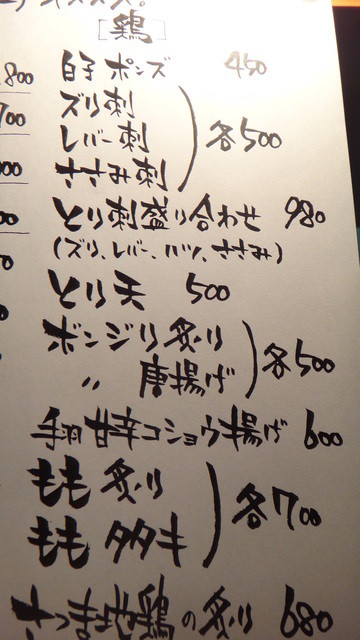 [鶏]
白子ポンズ 450
ズリ刺
レバー刺
ささみ刺
各500
とり刺盛り合わせ 980
(ズリ、レバー、ハツ、ささみ)
とり天 500
ボンジリ炙り
〃 唐揚げ
各500
手羽甘辛コショウ揚げ 600
もも炙り
ももタタキ
各700
さつま地鶏の炙り 680
800
700